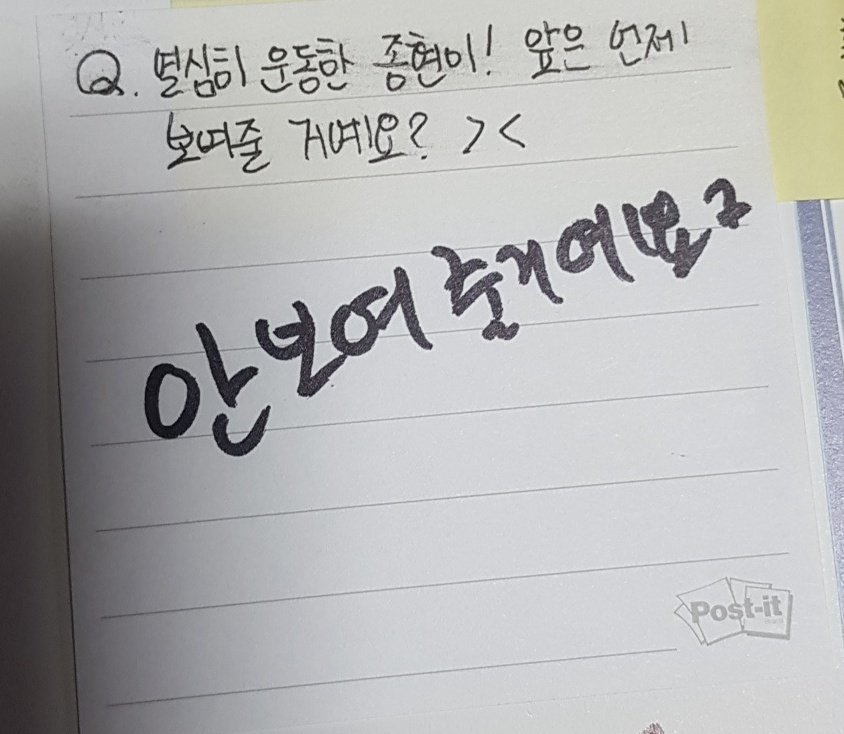 Q. 열심히 운동한 종현이! 앞은 언제
보여줄 거예요? > <
안보여줄거에요?
Post-it